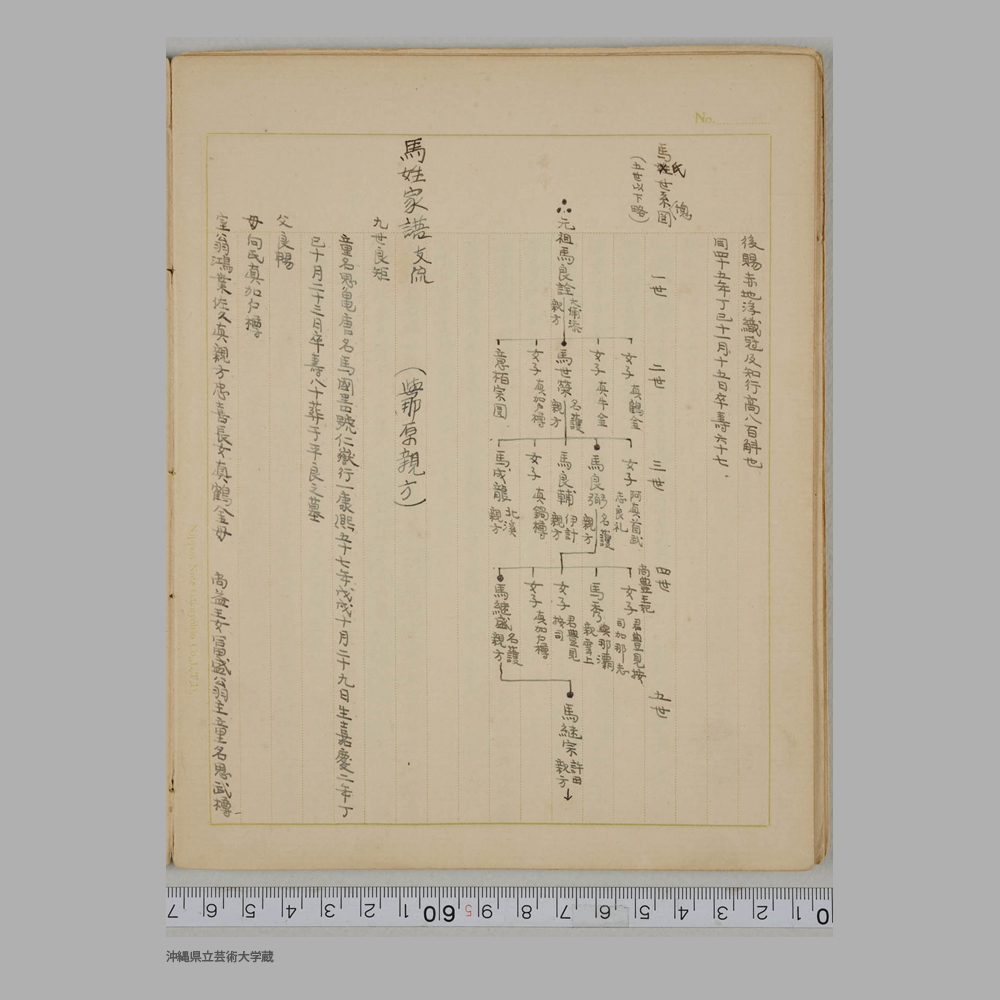 No.
後賜赤地浮織冠及知行高八百斛也
同四十五年丁巳十一月十五日卒壽六十七、
馬氏世系図
(五世以下略)
一世 二世 三世 四世 五世
元祖馬良詮 大宜味親方
女子 真鶴金
女子 真牛金
馬世榮 名護親方
女子 真加戸樽
意栢宗因
女子 阿真首武志良礼
馬良弼 名護親方
馬良輔 伊計親方
女子 真鍋樽
馬成龍 北溪親方
尚豐王妃
女子 君豐見按司加那志
馬秀 與那覇親雲上
女子 君豐見按司
女子 真加戸樽
馬継盛 名護親方
馬継宗 許田親方
馬姓家譜支流 (與那原親方)
九世良矩
童名思亀唐名馬國噐號仁嶽行一康熙五十七年戊戌十月二十九日生嘉慶二年丁
巳十月二十三日卒壽八十葬于平良之墓
父良暢
母向氏真加戸樽
室翁鴻業佐久真親方忠喜長女真鶴金母 尚益王女富盛公翁主童名思武樽
沖縄県立芸術大学蔵
7 6 5 4 3 2 1 60 9 8 7 6 5 4 3 2 1 0